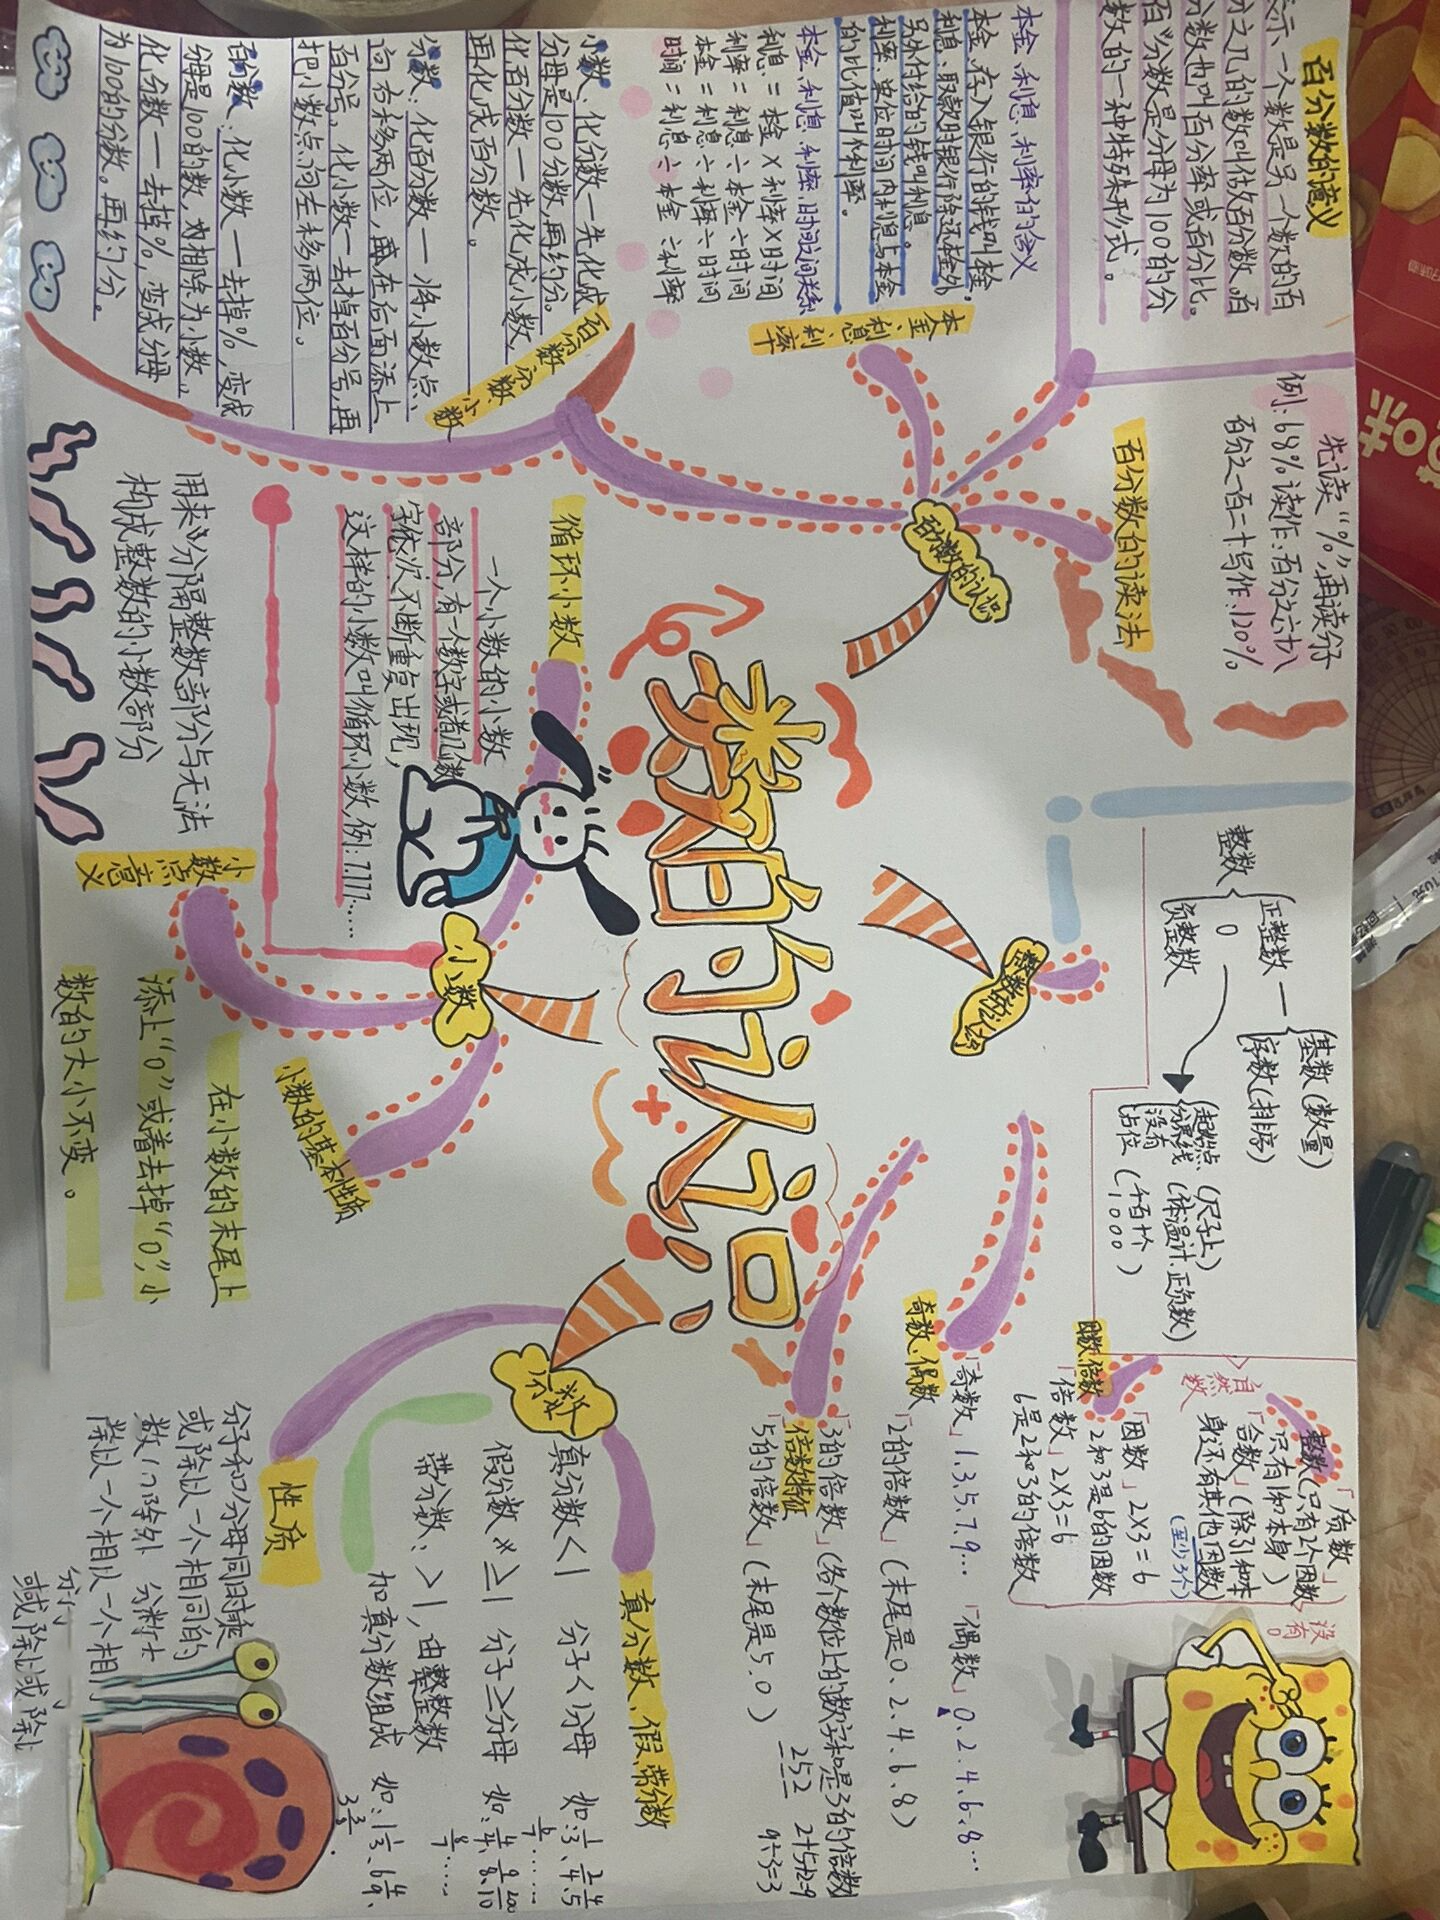 百分数的意义
表示一个数是另一个数的百
分之几的数叫做百分数。百
分数也叫百分率或百分比。
百分数是分母为100的分
数的一种特殊形式。
本金、利息、利率的含义
本金:存入银行的钱叫本金,
利息:取款时银行除还本金外
另外付给的钱叫利息。
利率:单位时间内利息与本金
的比值叫做利率。
本金、利息、利率、时间之间关系
利息=本金×利率×时间
利率=利息÷本金÷时间
本金=利息÷利率÷时间
时间=利息÷本金÷利率
本金、利息、利率
小数:化分数—先化成
分母是100分数,再约分。
化百分数—先化成小数,
再化成百分数。
分数:化百分数—将小数点
向右移两位,并在后面添上
百分号。化小数—去掉百分号,再
把小数点向左移两位。
百分数:化小数—去掉%,变成
分母是100的数,相除为小数。
化分数—去掉%,变成分母
为100的分数,再约分。
百分数、分数、小数
百分数的认识
百分数的读法
先读“%”,再读分子
例:68%读作:百分之六十八
百分之一百二十写作:120%
数的认识
循环小数
一个小数的小数
部分,有一个数字或者几个数
字依次不断重复出现,
这样的小数叫循环小数,例:7.171……
用来分隔整数部分与无法
构成整数的小数部分
小数点意义
小数
小数的基本性质
在小数的末尾上
添上“0”或着去掉“0”,小
数的大小不变。
整数
正整数
0
负整数
基数(数量)
序数(排序)
起始点(尺子上)
分界线(体温计.正负数)
没有
占位(千百十个
1000)
自然数
整数
「质数」
(只有2个因数
只有1和本身)
「合数」(除1和本
身还有其他因数)
(至少3个)
没有0
因数、倍数
「因数」2×3=6
2和3是6的因数
「倍数」2×3=6
6是2和3的倍数
奇数、偶数
「奇数」1.3.5.7.9… 「偶数」0.2.4.6.8…
倍数特征
「2的倍数」(末尾是0.2.4.6.8)
「3的倍数」(各个数位上的数字和是3的倍数)
252 2+5+2=9
9÷3=3
「5的倍数」(末尾是5.0)
分数
真分数、假、带分数
真分数<1 分子<分母 如:
假分数≥1 分子≥分母 如:
带分数:>1,由整数
加真分数组成 如:
性质
分子和分母同时乘
或除以一个相同的
数(0除外)